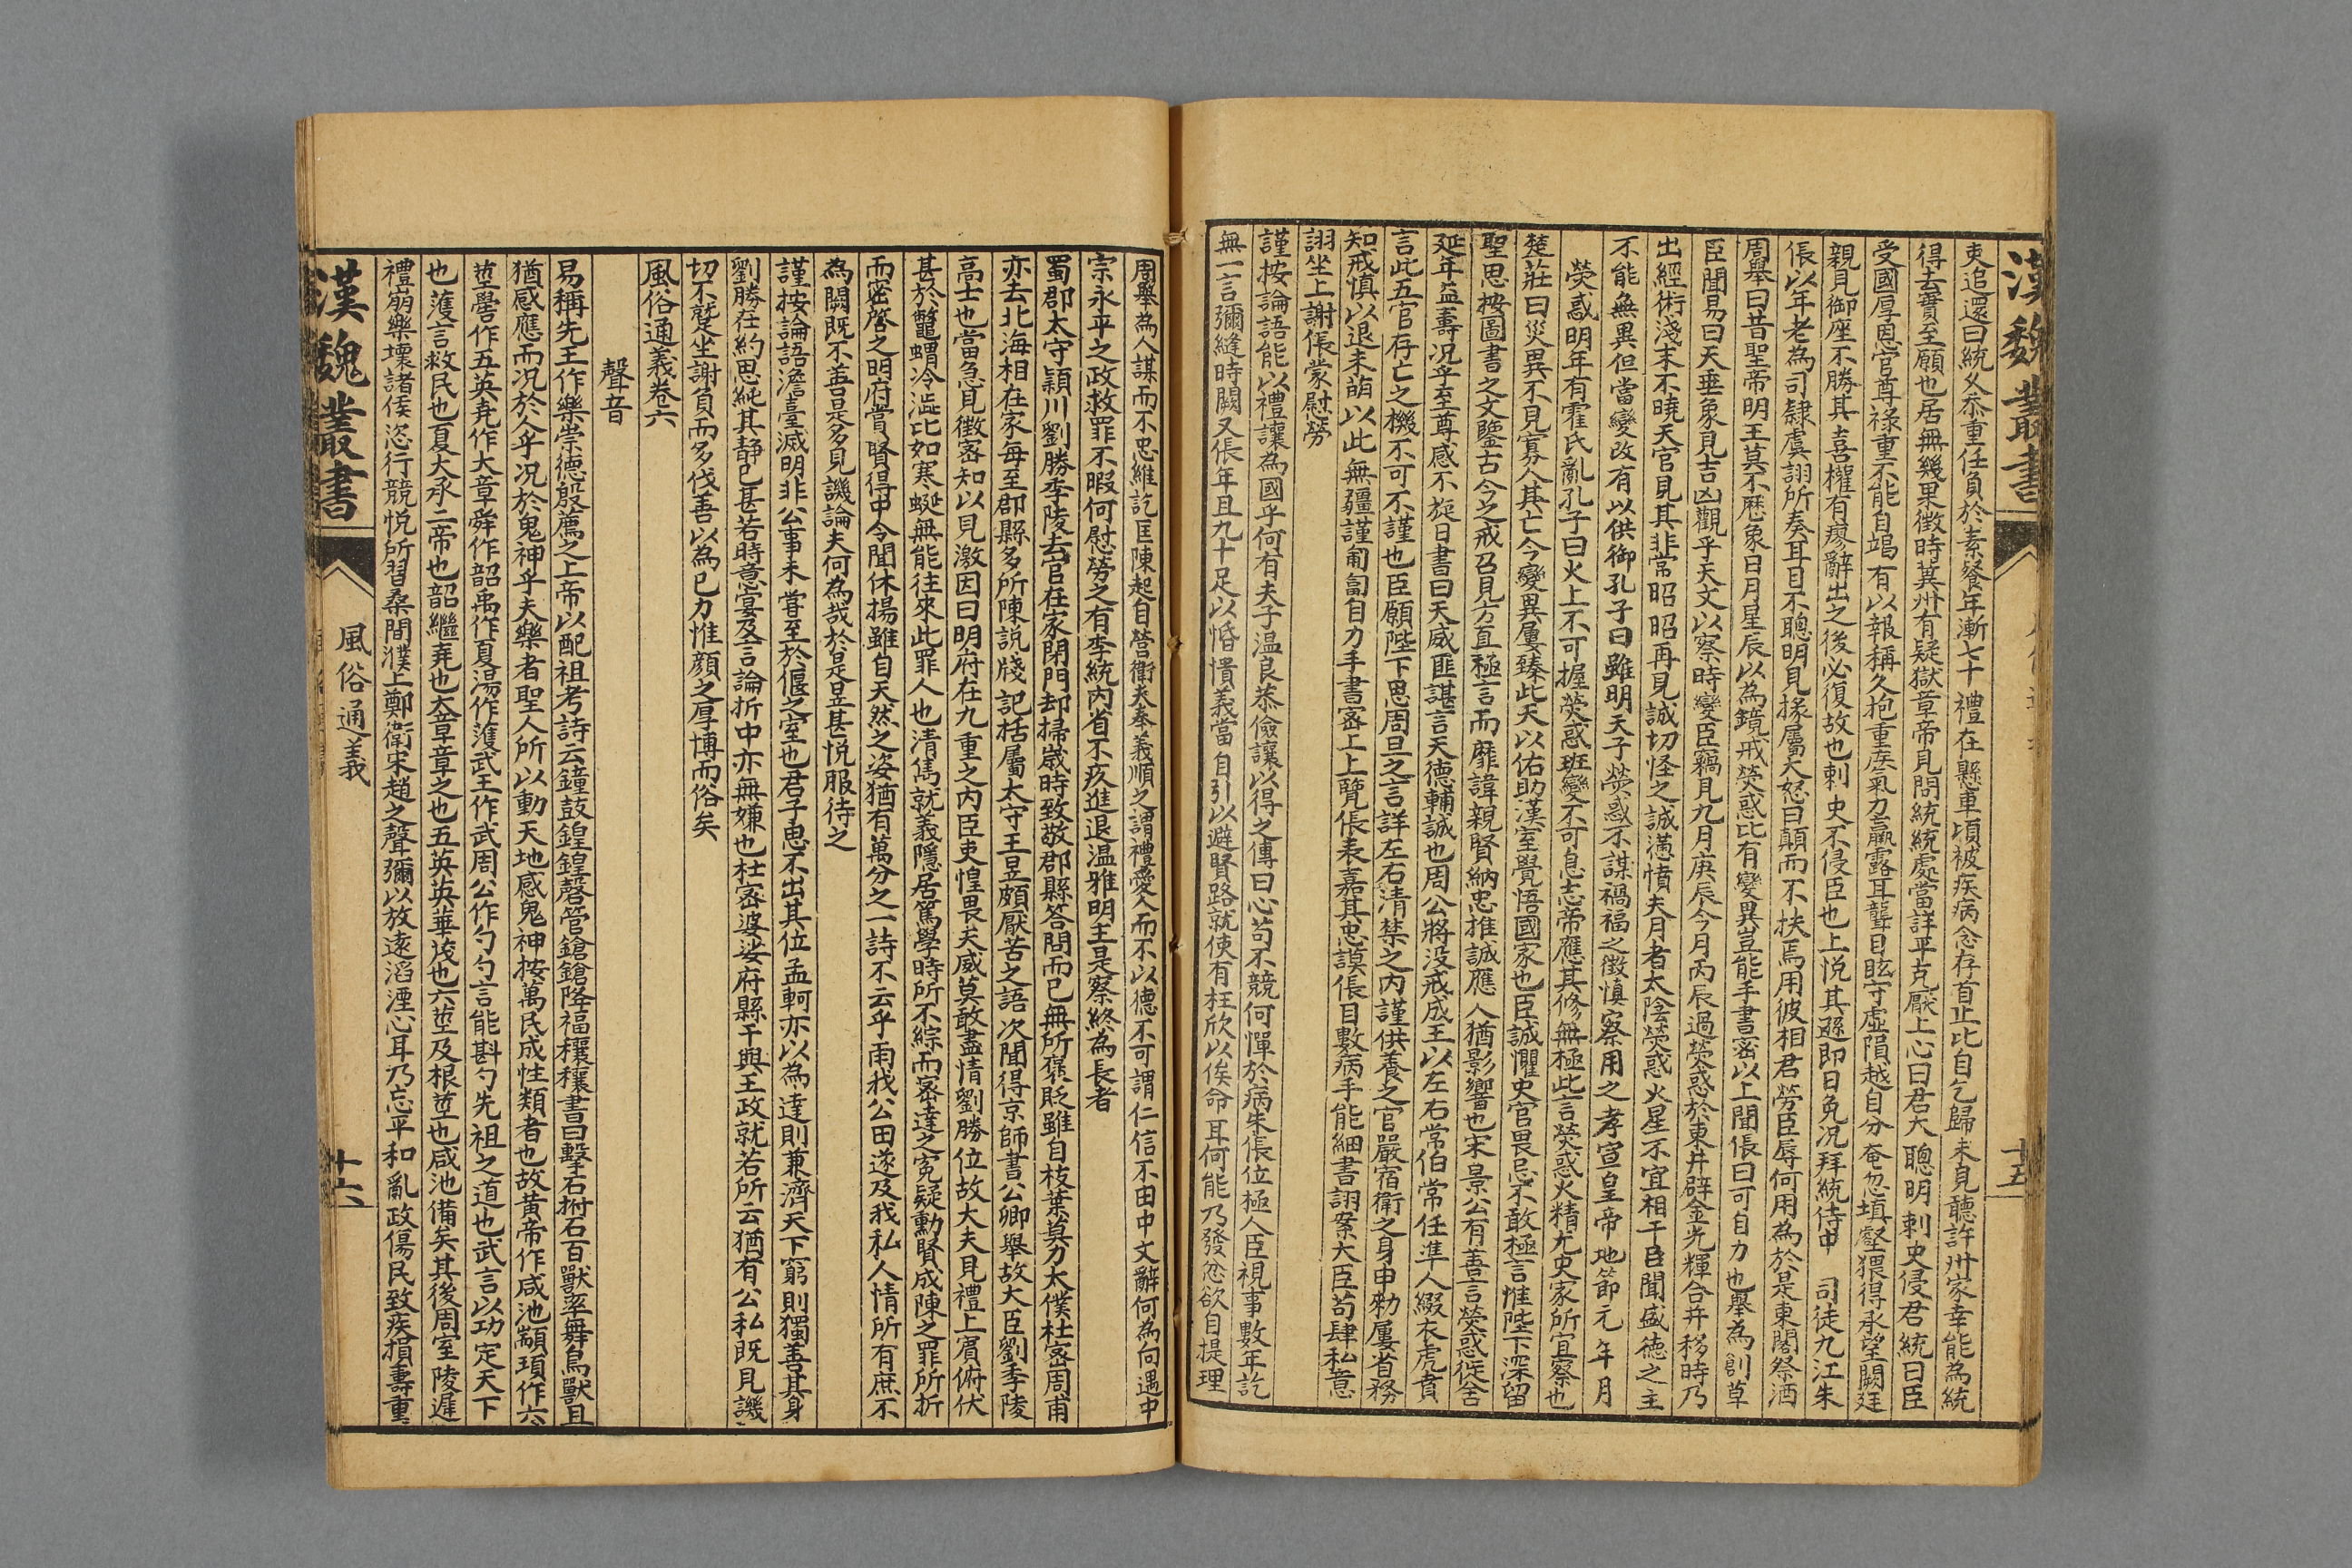 漢魏叢書
十五
吏追還曰統久忝重任負於素餐年漸七十禮在懸車頃被疾病念存首丘比自乞歸未見聽許州家幸能為統
得去實至願也居無幾果徵時冀州有疑獄章帝見問統統處當詳平克厭上心曰君大聰明刺史侵君統曰臣
受國厚恩官尊祿重不能自竭有以報稱久抱重疾氣力羸露耳聾目眩守虛隕越自分奄忽填壑猥得承望闕廷
親見御座不勝其喜權有瘳辭出之後必復故也刺史不侵臣也上悅其遜即日免况拜統侍中　司徒九江朱
倀以年老為司隸虞詡所奏耳目不聰明見掾屬大怒曰顛而不扶焉用彼相君勞臣辱何用為於是東閣祭酒
周舉曰昔聖帝明王莫不歷象日月星辰以為鏡戒熒惑比有變異豈能手書密以上聞倀曰可自力也舉為創草
臣聞易曰天垂象見吉凶觀乎天文以察時變臣竊見九月庚辰今月丙辰過熒惑於東井辟金光輝合并移時乃
出經術淺末不曉天官見其非常昭昭再見誠切怪之誠懣憤夫月者太陰熒惑火星不宜相干臣聞盛德之主
不能無異但當變改有以供御孔子曰雖明天子熒惑不謀禍福之徵慎察用之孝宣皇帝地節元年月
熒惑明年有霍氏亂孔子曰火上不可握熒惑班變不可息志帝應其修無極此言熒惑火精尤史家所宜察也
楚莊曰災異不見寡人其亡今變異屢臻此天以佑助漢室覺悟國家也臣誠懼史官畏忌不敢極言惟陛下深留
聖思按圖書之文鑒古今之戒召見方直極言而靡諱親賢納忠推誠應人猶影響也宋景公有善言熒惑徙舍
延年益壽况乎至尊感不旋日書曰天威匪諶言天德輔誠也周公將没戒成王以左右常伯常任準人綴衣虎賁
言此五官存亡之機不可不謹也臣願陛下思周旦之言詳左右清禁之内謹供養之官嚴宿衛之身申勑屢省務
知戒慎以退未萌以此無疆謹匍匐自力手書密上上覽倀表嘉其忠謨倀目數病手能細書詡案大臣苟肆私意
詡坐上謝倀蒙慰勞
謹按論語能以禮讓為國乎何有夫子温良恭儉讓以得之傳曰心苟不競何憚於病朱倀位極人臣視事數年訖
無一言彌縫時闕又張年且九十足以惛憒義當自引以避賢路就使有枉欣以俟命耳何能乃發忿欲自提理
周舉為人謀而不忠維訖匡陳起自營衛夫奉義順之謂禮愛人而不以德不可謂仁信不由中文辭何為向遇中
宗永平之政救罪不暇何慰勞之有李統内省不疚進退温雅明主是察終為長者
蜀郡太守潁川劉勝季陵去官在家閉門却掃歲時致敬郡縣答問而已無所褒貶雖自枝葉莫力太僕杜密周甫
亦去北海相在家每至郡縣多所陳説牋記栝屬太守王昱頗厭苦之語次聞得京師書公卿舉故大臣劉季陵
高士也當急見徵密知以見激因曰明府在九重之内臣吏惶畏天威莫敢盡情劉勝位故大夫見禮上賓俯伏
甚於鼈蝟冷澁比如寒蜒無能往來此罪人也清雋就義隱居篤學時所不綜而密達之寃疑勳賢成陳之罪所折
而密啓之明府賞賢得中令聞休揚雖自天然之姿猶有萬分之一詩不云乎雨我公田遂及我私人情所有庶不
為闕既不善是多見譏論夫何為哉於是昱甚悦服待之
謹按論語澹臺滅明非公事未嘗至於偃之室也君子思不出其位孟軻亦以為達則兼濟天下窮則獨善其身
劉勝在約思純其静已甚若時意宴及言論折中亦無嫌也杜密婆娑府縣干與王政就若所云猶有公私既見譏
切不蹵坐謝負而多伐善以為己力惟顔之厚博而俗矣
風俗通義卷六
聲音
易稱先王作樂崇德殷薦之上帝以配祖考詩云鐘鼓鍠鍠磬管鎗鎗降福穰穰書曰擊石拊石百獸率舞鳥獸且
猶感應而况於人乎况於鬼神乎夫樂者聖人所以動天地感鬼神按萬民成性類者也故黄帝作咸池顓頊作六
莖嚳作五英堯作大章舜作韶禹作夏湯作頀武王作武周公作勺勺言能斟勺先祖之道也武言以功定天下
也頀言救民也夏大承二帝也韶繼堯也大章章之也五英英華茂也六莖及根莖也咸池備矣其後周室陵遲
禮崩樂壞諸侯恣行競悦所習桑間濮上鄭衛宋趙之聲彌以放遠滔湮心耳乃忘平和亂政傷民致疾損壽重
漢魏叢書
風俗通義
十六